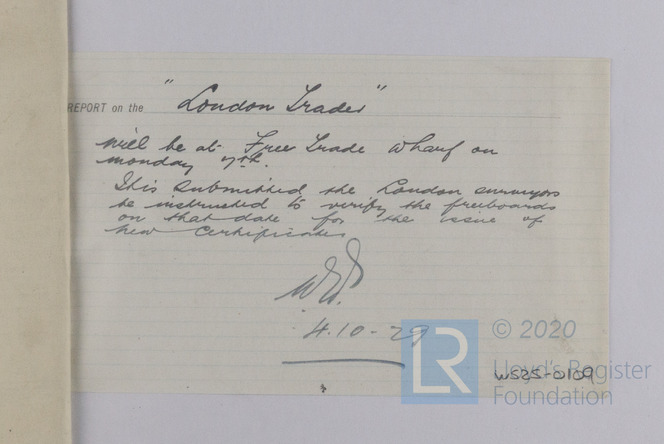 REPORT on the "London Trader"
will be at Free Trade Wharf on
monday 7th.
It is submitted the London surveyors
be instructed to verify the freeboards
on that date for the issue of
new certificates
4.10-29
LR
© 2020
Lloyd's Register
Foundation
WS25-0109